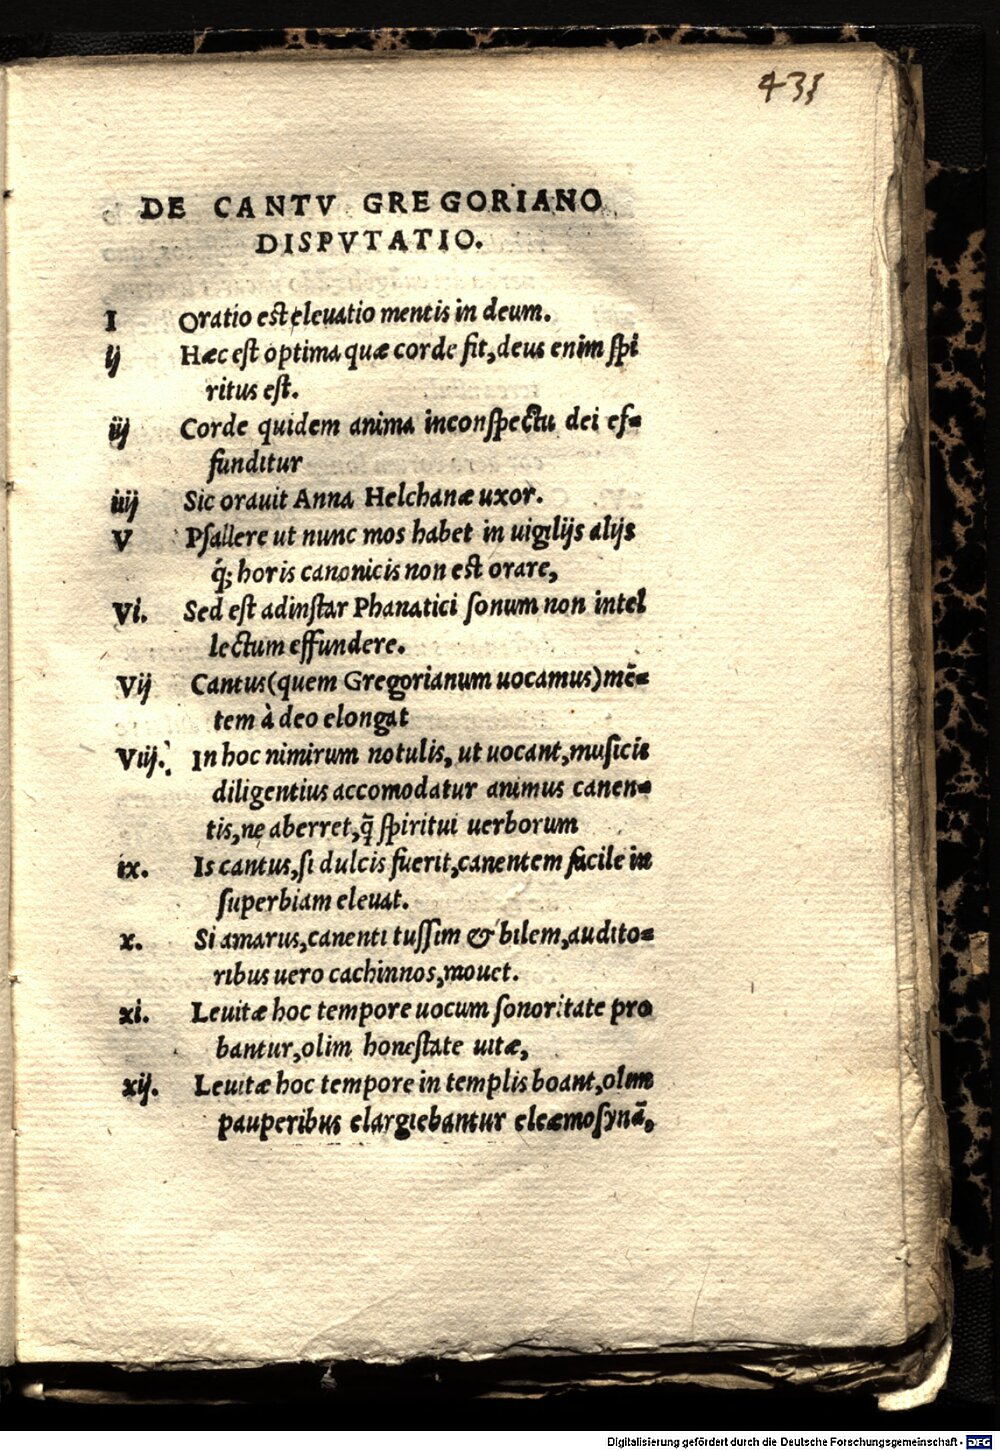 431
DE CANTV GREGORIANO
DISPVTATIO.
I Oratio est eleuatio mentis in deum.
ij Hæc est optima quæ corde fit, deus enim spi
ritus est.
iij Corde quidem anima inconspectu dei ef=
funditur
iiij Sic orauit Anna Helchanæ uxor.
V Psallere ut nunc mos habet in uigilijs alijs
q́; horis canonicis non est orare,
Vi. Sed est adinstar Phanatici sonum non intel
lectum effundere.
Vij Cantus (quem Gregorianum uocamus) mē=
tem à deo elongat
Viij. In hoc nimirum notulis, ut uocant, musicis
diligentius accomodatur animus canen=
tis, ne aberret, q̃ spiritui uerborum
ix. Is cantus, si dulcis fuerit, canentem facile in
superbiam eleuat.
x. Si amarus, canenti tussim & bilem, audito=
ribus uero cachinnos, mouet.
xi. Leuitæ hoc tempore uocum sonoritate pro
bantur, olim honestate uitæ,
xij. Leuitæ hoc tempore in templis boant, olim
pauperibus elargiebantur eleæmosynā,
Digitalisierung gefördert durch die Deutsche Forschungsgemeinschaft - DFG